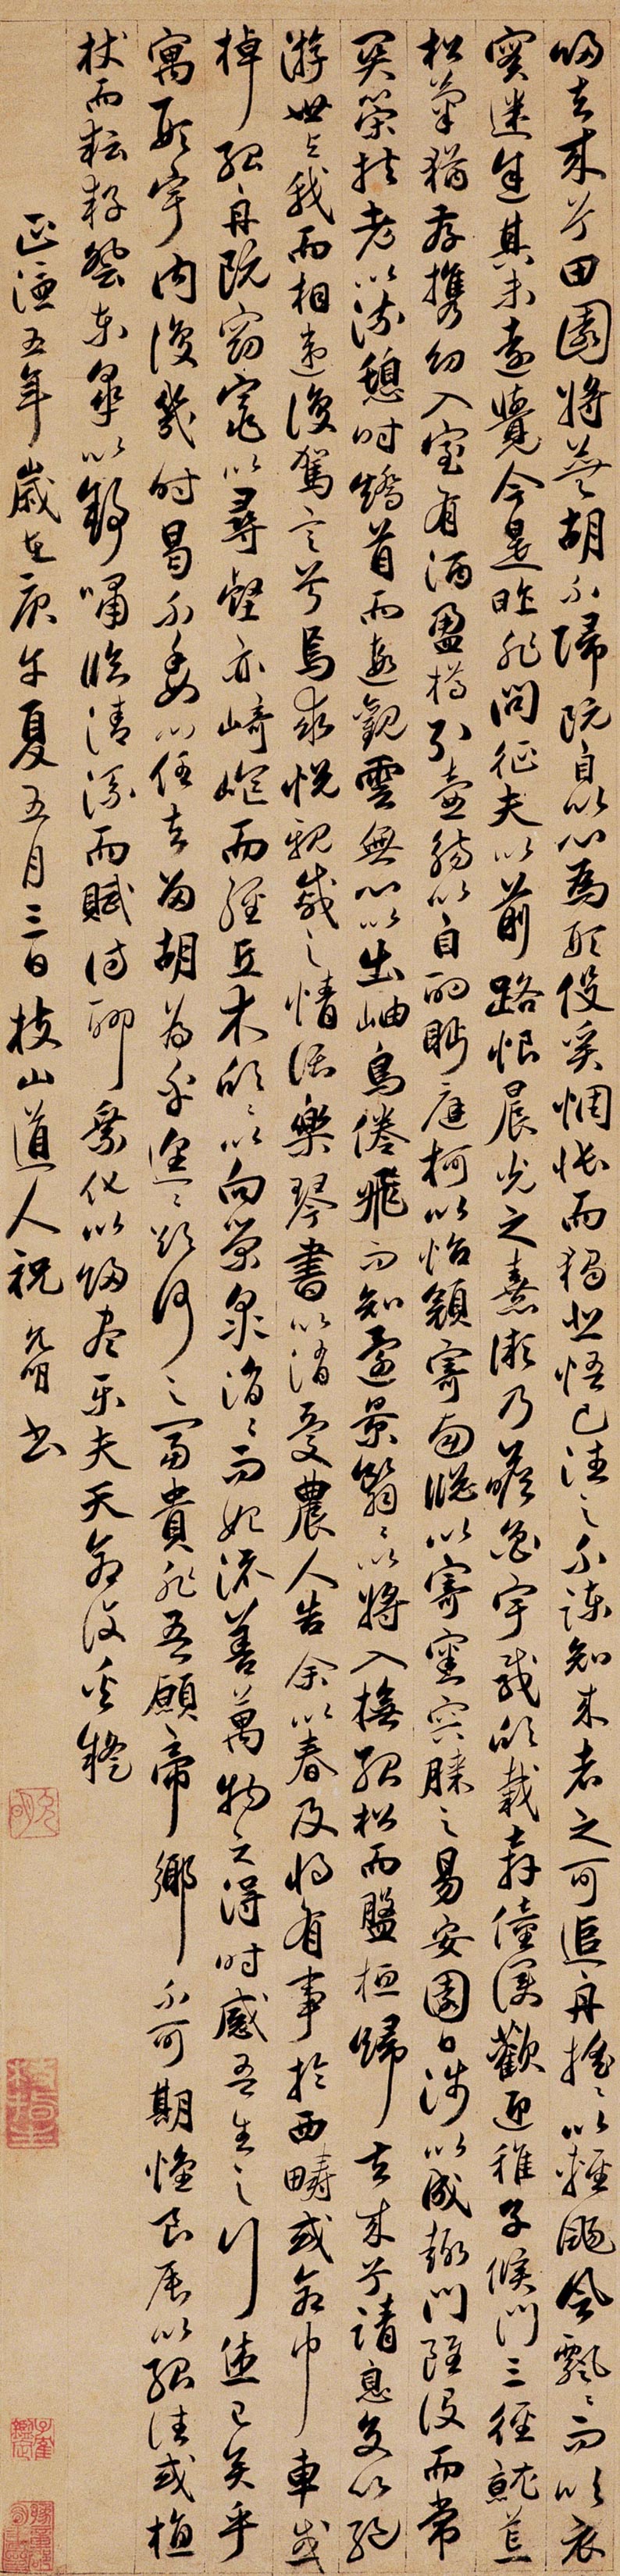 歸去來兮田園將蕪胡不歸既自以心為形役奚惆悵而獨悲悟已往之不諫知來者之可追舟搖〻以輕颺風飄〻而吹衣
實迷途其未遠覺今是昨非問征夫以前路恨晨光之熹微乃瞻衡宇載欣載奔僮僕歡迎稚子候門三徑就荒
松菊猶存攜幼入室有酒盈樽引壺觴以自酌眄庭柯以怡顏寄南牕以寄傲審容膝之易安園日涉以成趣門雖設而常
關策扶老以流憩時矯首而遐觀雲無心以出岫鳥倦飛而知還景翳〻以將入撫孤松而盤桓歸去來兮請息交以絕
游世與我而相違復駕言兮焉求悅親戚之情話樂琴書以消憂農人告余以春及將有事於西疇或命巾車或
棹孤舟既窈窕以尋壑亦崎嶇而經丘木欣〻以向榮泉涓〻而始流善萬物之得時感吾生之行休已矣乎
寓形宇內復幾時曷不委心任去留胡為乎遑〻欲何之富貴非吾願帝鄉不可期懷良辰以孤往或植
杖而耘耔登東皋以舒嘯臨清流而賦詩聊乘化以歸盡樂夫天命復奚疑
正德五年歲在庚午夏五月三日枝山道人祝允明書
允明